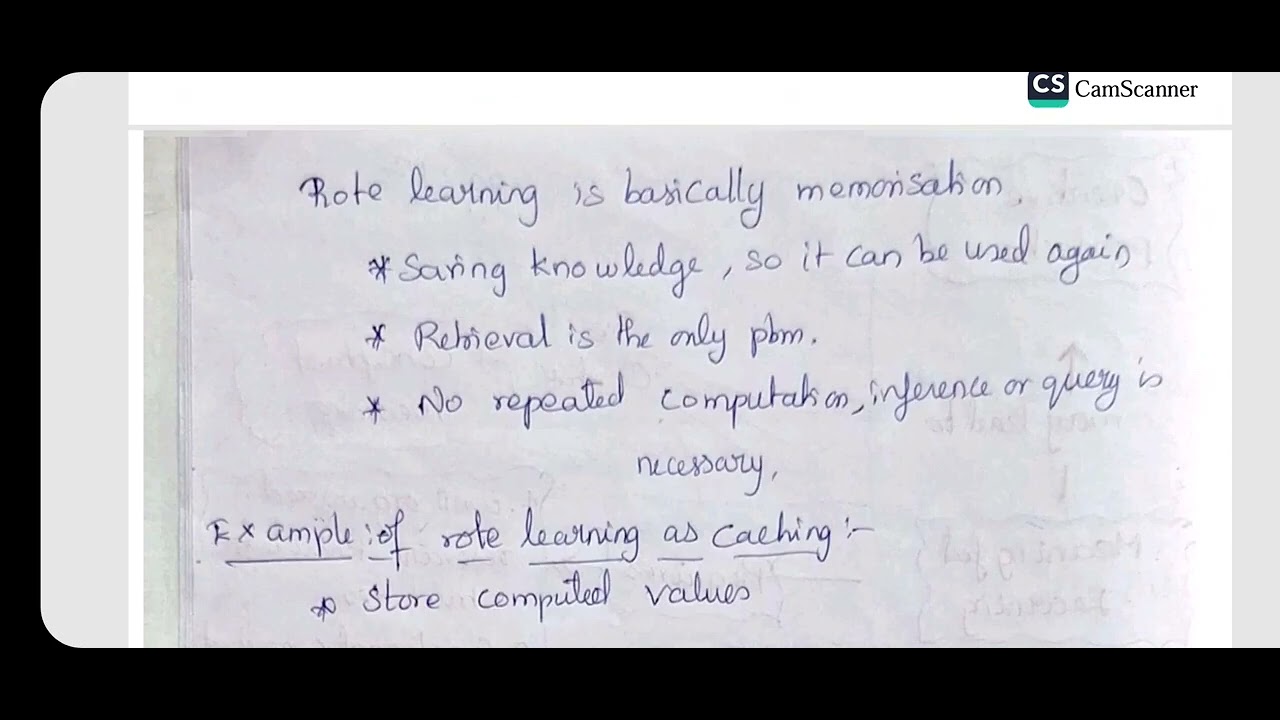 CS CamScanner
Rote learning is basically memorisation.
* Saving knowledge, so it can be used again
* Retrieval is the only pbm.
* No repeated computation, inference or query is
necessary.
Example :of rote learning as caching :-
* Store computed values